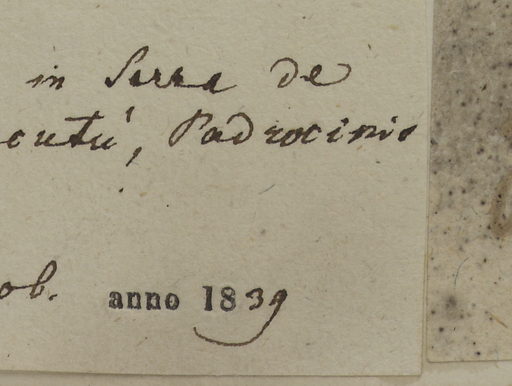 in Serra de
cutú, Padrocinio
ob. anno 1839